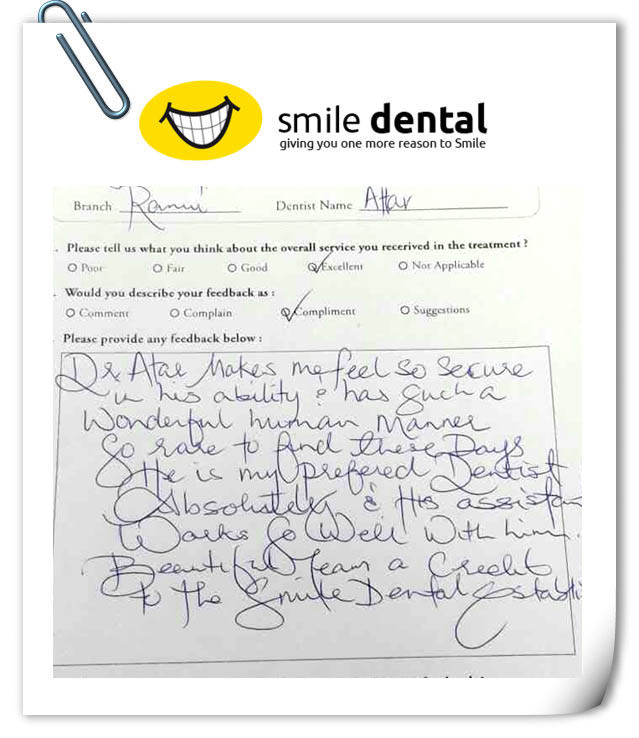 smile dental
giving you one more reason to Smile
Branch Dentist Name Attar
Please tell us what you think about the overall service you recerived in the treatment ?
Poor Fair Good Excellent Not Applicable
Would you describe your feedback as :
Comment Complain Compliment Suggestions
Please provide any feedback below :
Dr Atar Makes me feel so Secure
in his ability & has Such a
Wonderful human Manner
So rare to find these Days
He is my prefered Dentist
Absolutely & His assistan
Works So Well With him.
Beautiful Team a Credit
to the Smile Dental Establi